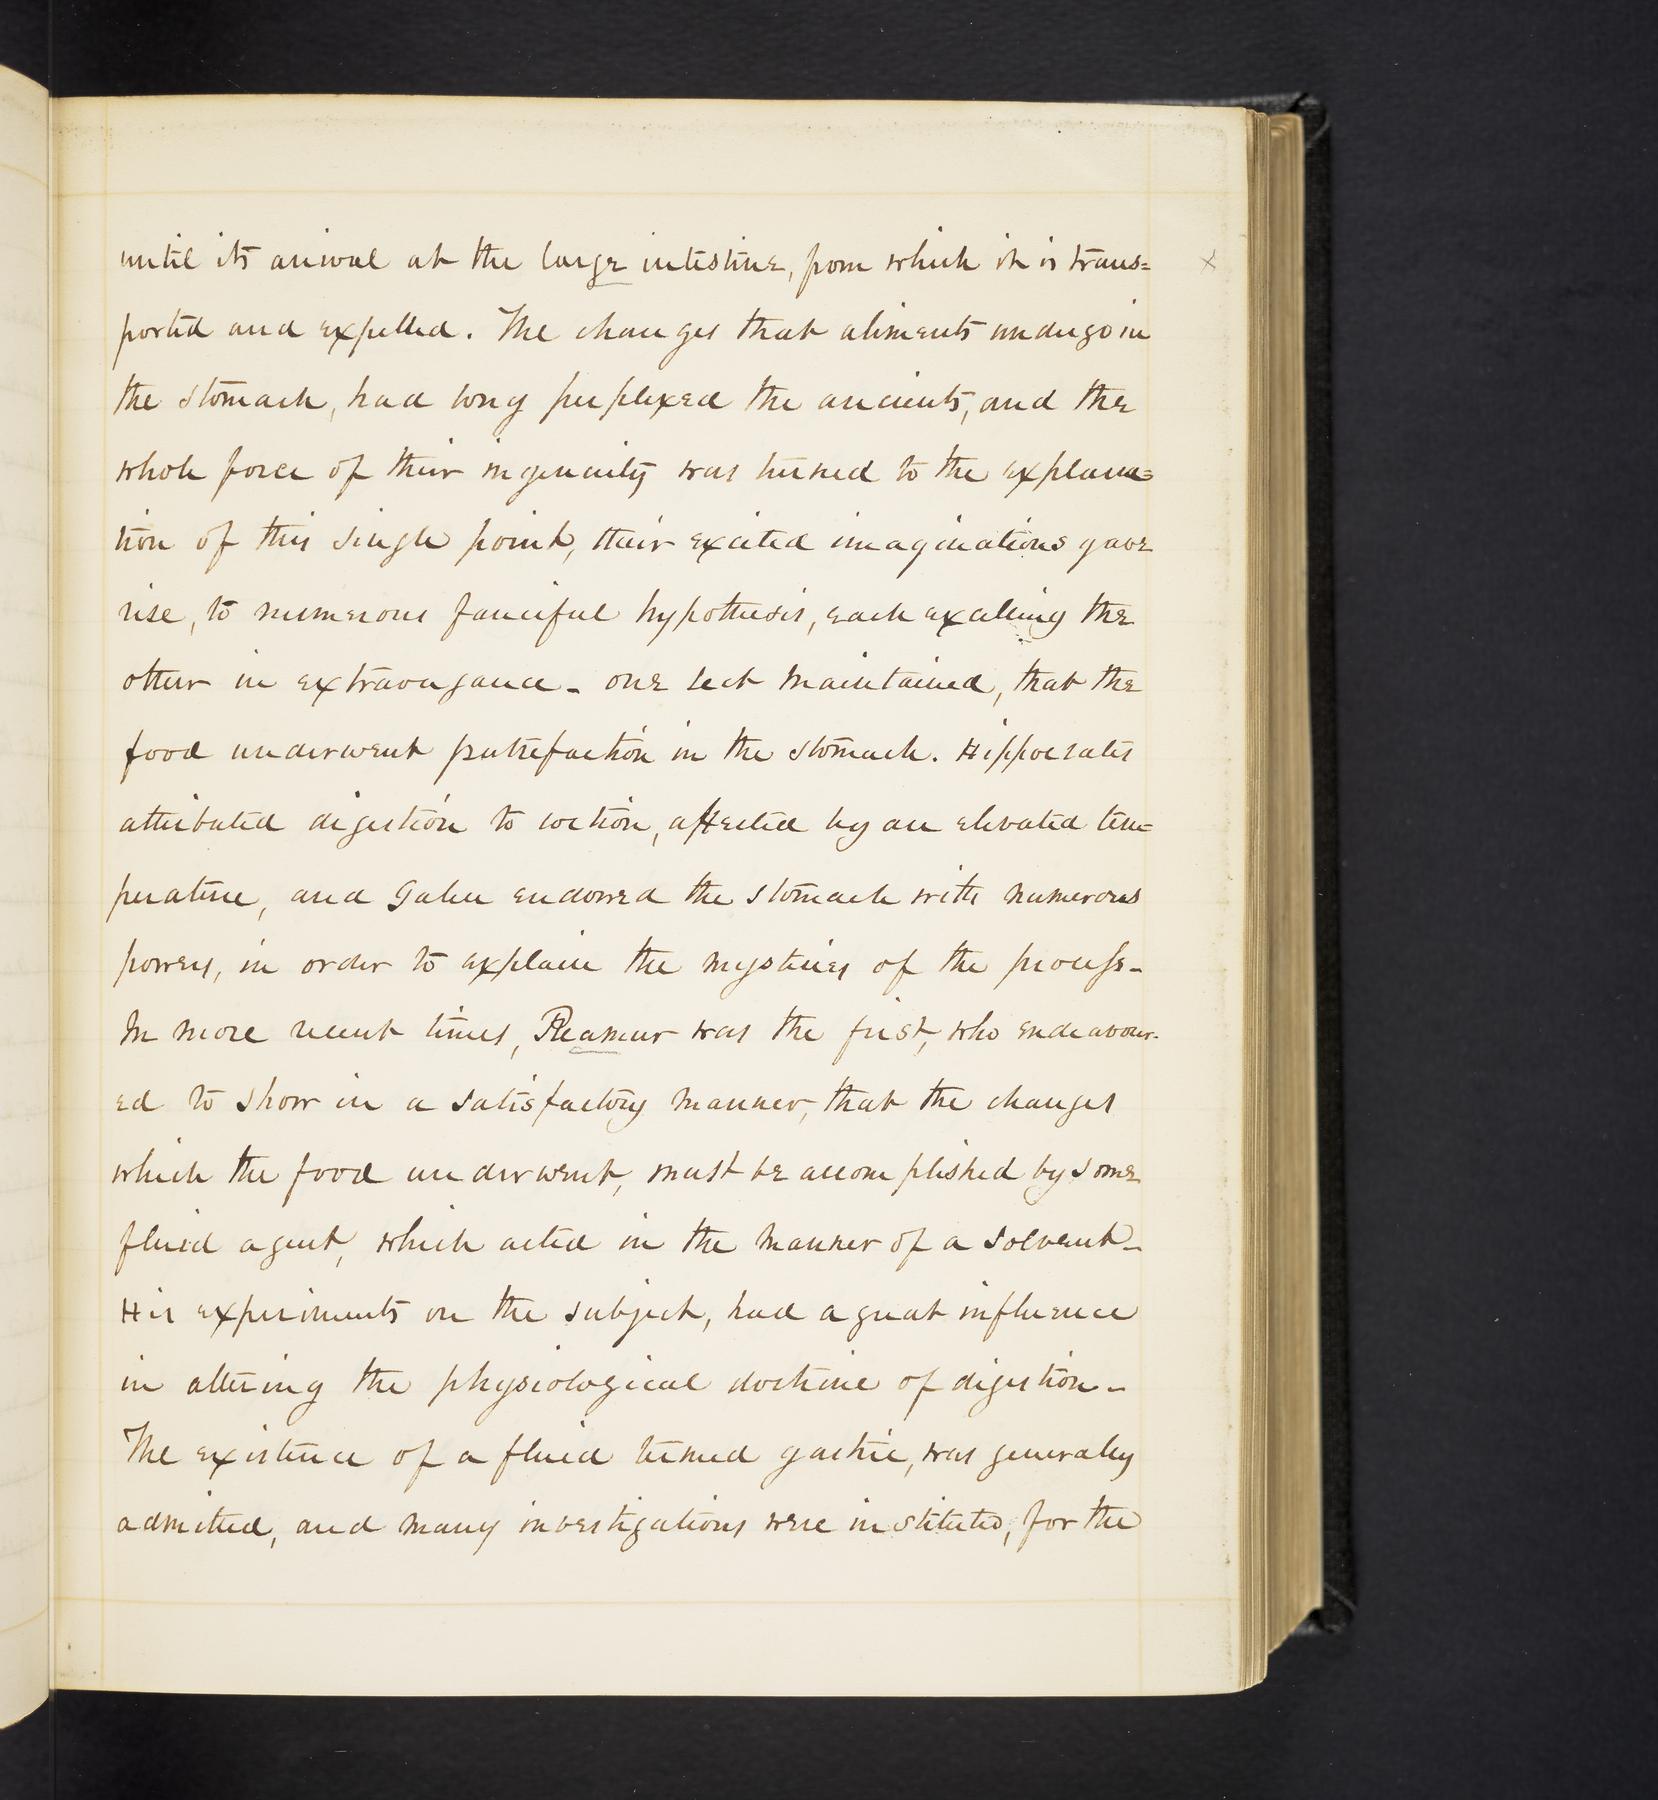 until its arrival at the large intestine, from which it is trans= x
ported and expelled. The changes that aliments undergo in
the stomach, had long perplexed the ancients, and the
whole force of their ingenuity was turned to the explana=
tion of this single point, their excited imaginations gave
rise, to numerous fanciful hypothesis, each exalting the
other in extravagance - one sect maintained, that the
food underwent putrefaction in the stomach. Hippocrates
attributed digestion to coction, affected by an elevated tem=
perature, and Galen endowed the stomach with numerous
powers, in order to explain the mysteries of the process -
In more recent times, Reamur was the first, who endeavour-
ed to show in a satisfactory manner, that the changes
which the food underwent, must be accomplished by some
fluid agent, which acted in the manner of a solvent -
His experiments on the subject, had a great influence
in altering the physiological doctrine of digestion -
The existence of a fluid termed gastric, was generally
admitted, and many investigations were instituted, for the